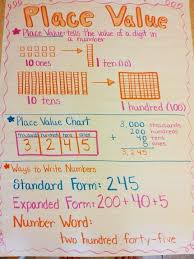 Place Value
Place Value: tells the value of a digit in
a number
10 ones
1 ten (10)
10 tens
1 hundred (100)
Place Value Chart
thousands hundreds tens ones
3, 2 4 5
3,000 thousands
200 hundreds
40 tens
+ 5 ones
3,245
Ways to Write Numbers
Standard Form: 245
Expanded Form: 200+40+5
Number Word:
two hundred forty-five